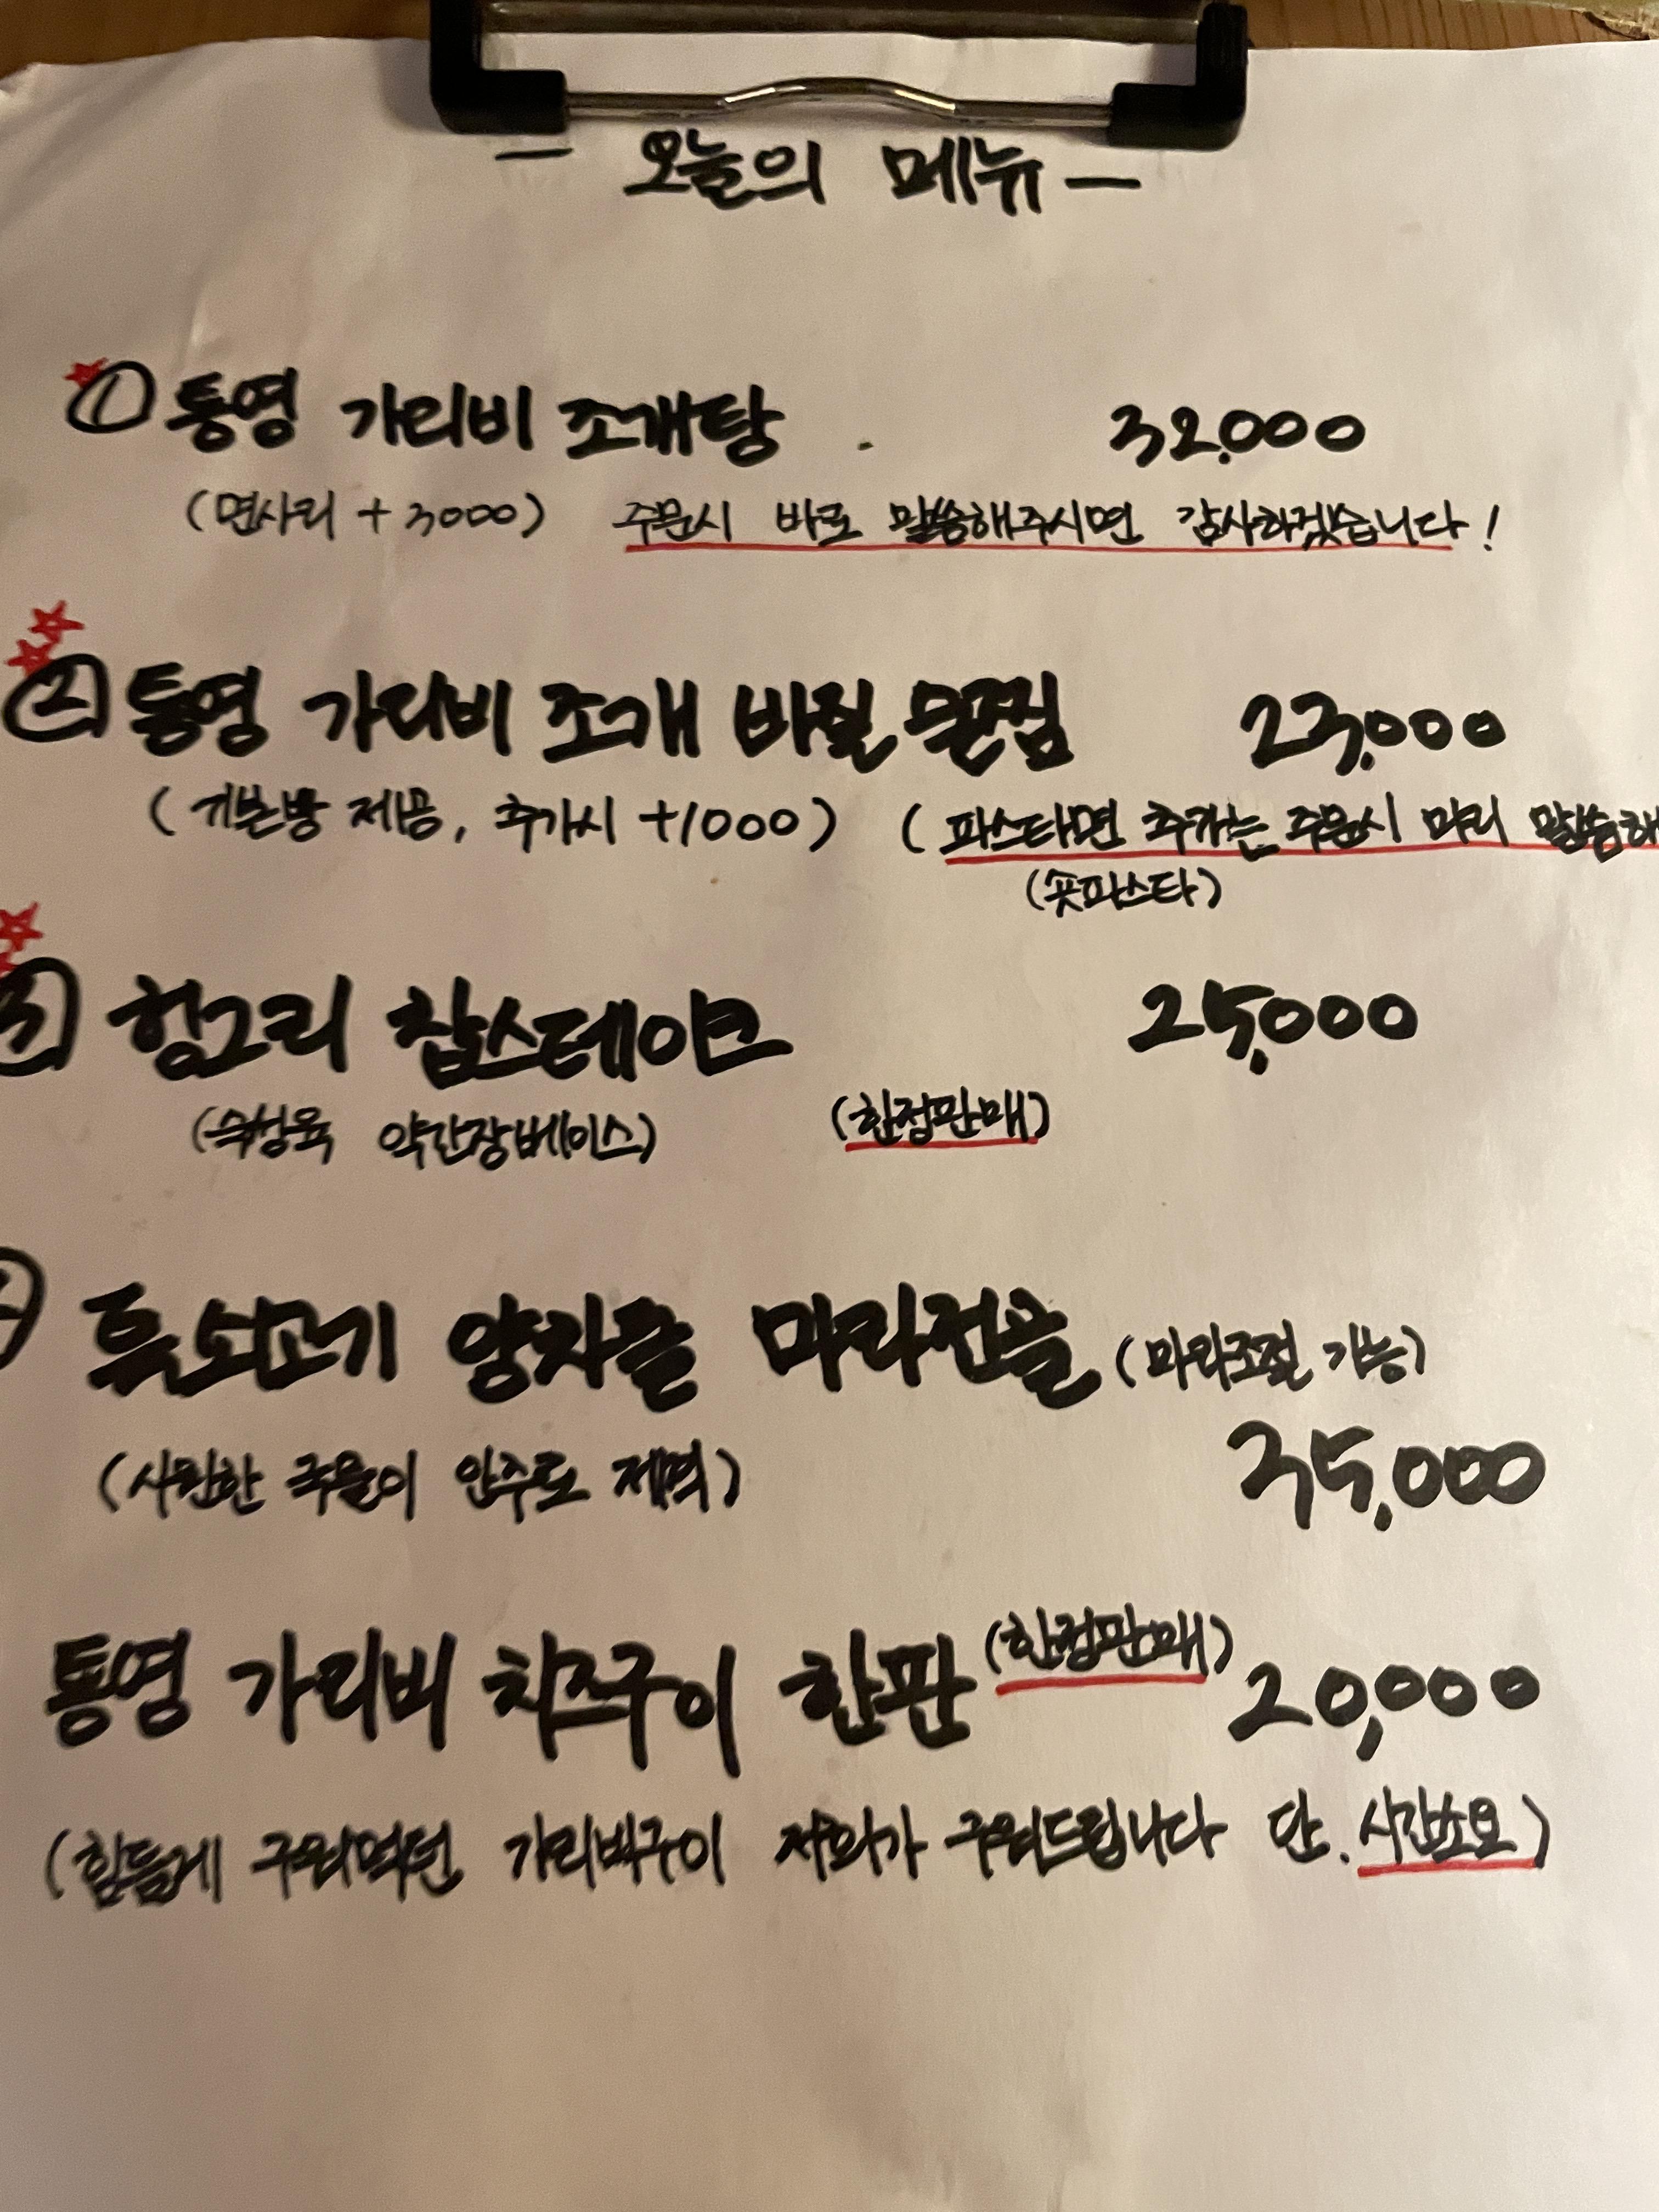 - 오늘의 메뉴 -
① 통영 가리비 조개탕 32,000
(면사리 + 3000) 주문시 바로 말씀해주시면 감사하겠습니다!
② 통영 가리비 조개 바질 술찜 23,000
(기본빵 제공, 추가시 +1000) (파스타면 추가는 주문시 미리 말씀해
(숏파스타)
③ 헝그리 찹스테이크 25,000
(숙성육 약간장베이스) (한정판매)
특소고기 양차돌 마라전골 (마라조절 가능)
(시원한 국물이 안주로 제격) 35,000
통영 가리비 치즈구이 한판 (한정판매) 20,000
(힘들게 구워먹던 가리비구이 저희가 구워드립니다 단, 시간소요)